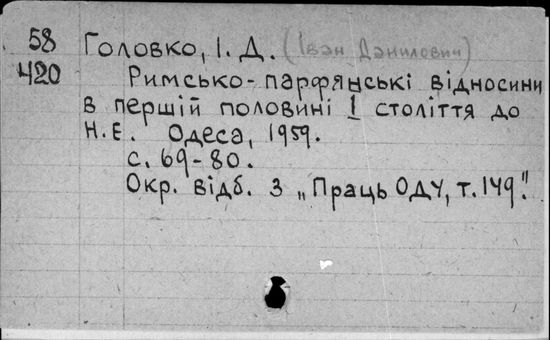 58 Головко, І. Д. (Іван Данилович)
420 Римсько-парфянські відносини
в першій половині І століття до
н.е. Одеса, 1959.
с. 69-80.
Окр. відб. з „Праць ОДУ, т. 149".